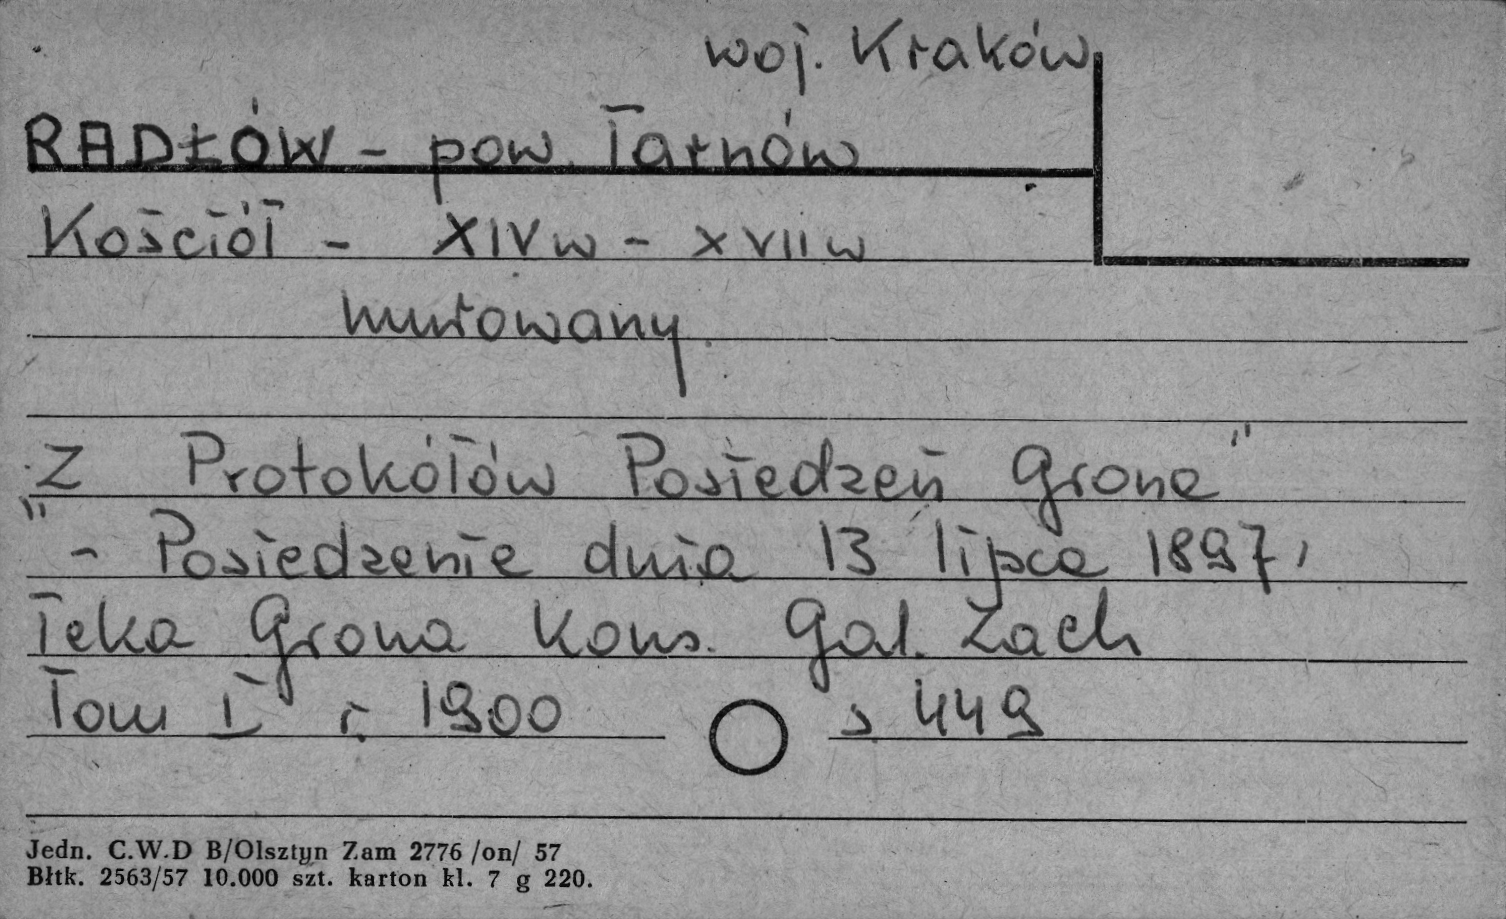 woj. Kraków
RADŁÓW - pow. Tarnów
Kościół - XIVw - XVIIw
murowany.
Z Protokółów Posiedzeń Grona"
" - Posiedzenie dnia 13 lipca 1897,
Teka Grona Kons. Gal. Zach
Tom I r. 1900 s 449
Jedn. C.W.D B/Olsztyn Zam 2776 /on/ 57
Błtk. 2563/57 10.000 szt. karton kl. 7 g 220.